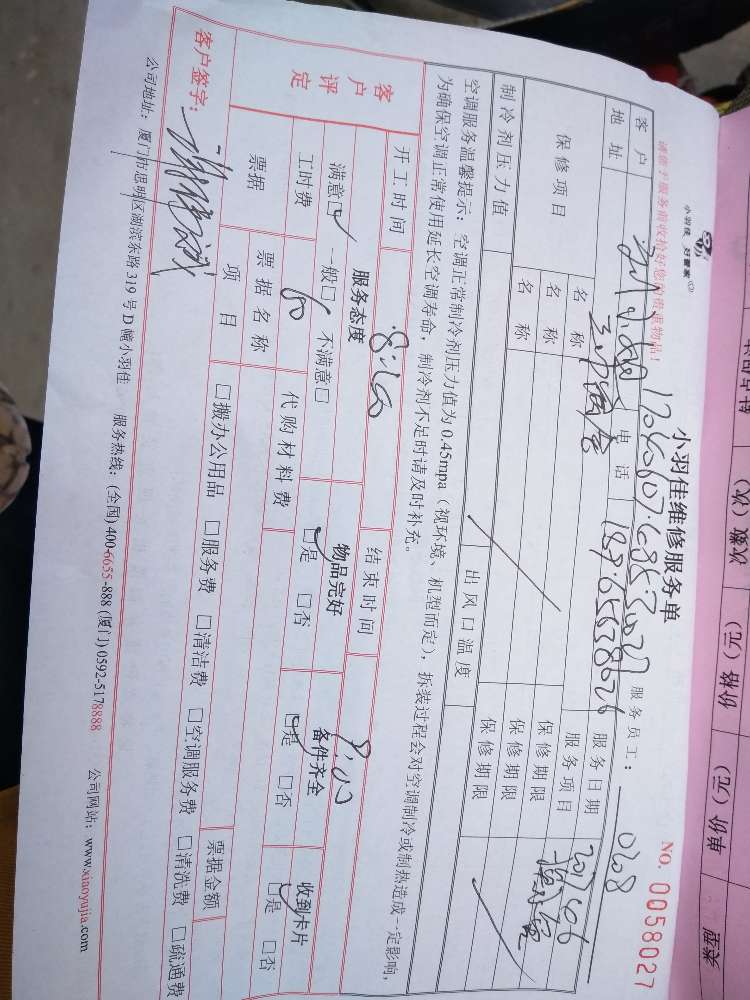 小羽佳 好管家
小羽佳维修服务单
NO. 0058027
请您于服务前收拾好您的贵重物品!
服务员工: 0208
客户 电话 服务日期
地址 服务项目
保修项目 名称 保修期限
名称 保修期限
名称 保修期限
制冷剂压力值 出风口温度
空调服务温馨提示: 空调正常制冷剂压力值为 0.45mpa (视环境、机型而定), 拆装过程会对空调制冷或制热造成一定影响,
为确保空调正常使用延长空调寿命, 制冷剂不足时请及时补充。
开工时间 结束时间
客户评定
服务态度 物品完好 备件齐全 收到卡片
满意☑ 一般□ 不满意□ ☑是 □否 ☑是 □否 ☑是 □否
工时费 60 代购材料费
票据 票据名称 票据金额
项目 □搬办公用品 □服务费 □清洁费 □空调服务费 □清洗费 □疏通费
客户签字:
公司地址: 厦门市思明区湖滨东路 319 号 D 幢小羽佳 服务热线: (全国) 400-6655-888 (厦门) 0592-5178888 公司网站: www.xiaoyujia.com
次数(次)
价格(元)
单价(元)